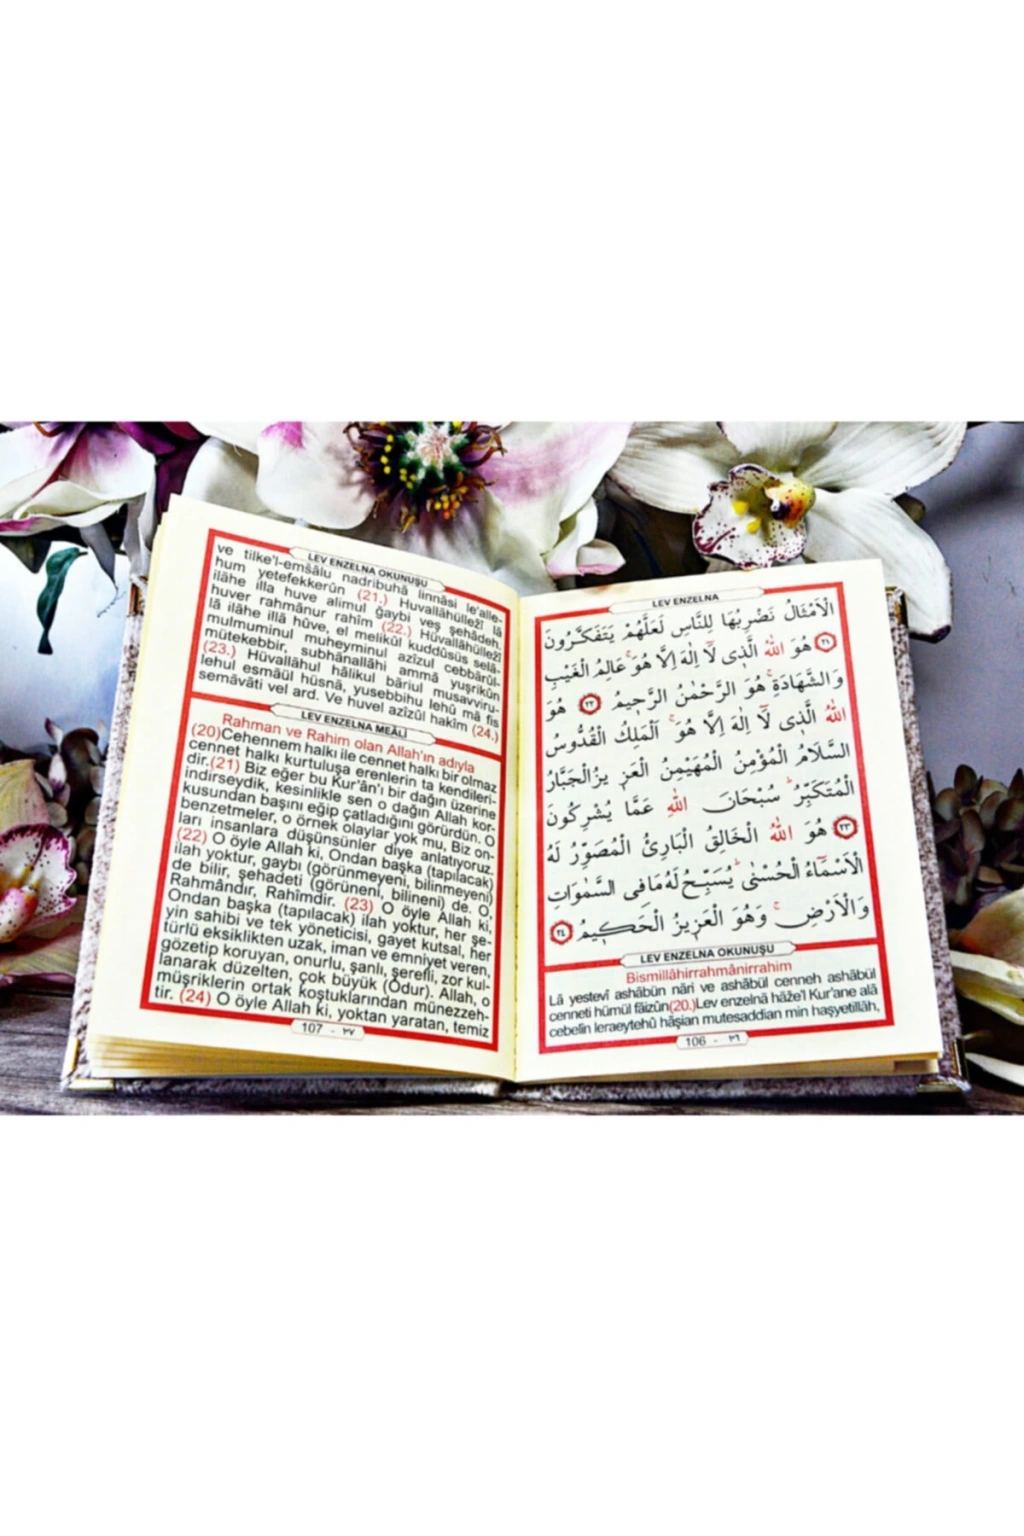 LEV ENZELNA
الْاَمْثَالُ نَضْرِبُهَا لِلنَّاسِ لَعَلَّهُمْ يَتَفَكَّرُونَ
﴿٢١﴾ هُوَ اللّٰهُ الَّذٖى لَٓا اِلٰهَ اِلَّا هُوَۚ عَالِمُ الْغَيْبِ
وَالشَّهَادَةِۚ هُوَ الرَّحْمٰنُ الرَّحٖيمُ ﴿٢٢﴾ هُوَ
اللّٰهُ الَّذٖى لَٓا اِلٰهَ اِلَّا هُوَۚ اَلْمَلِكُ الْقُدُّوسُ
السَّلَامُ الْمُؤْمِنُ الْمُهَيْمِنُ الْعَزٖيزُ الْجَبَّارُ
الْمُتَكَبِّرُؕ سُبْحَانَ اللّٰهِ عَمَّا يُشْرِكُونَ
﴿٢٣﴾ هُوَ اللّٰهُ الْخَالِقُ الْبَارِئُ الْمُصَوِّرُ لَهُ
الْاَسْمَٓاءُ الْحُسْنٰىؕ يُسَبِّحُ لَهُ مَا فِى السَّمٰوَاتِ
وَالْاَرْضِۚ وَهُوَ الْعَزٖيزُ الْحَكٖيمُ ﴿٢٤﴾
LEV ENZELNA OKUNUŞU
Bismillâhirrahmânirrahim
Lâ yestevî ashâbün nâri ve ashâbül cenneh ashâbül
cenneti hümül fâizûn(20.)Lev enzelnâ hâże'l Kur'ane alâ
cebelin leraeytehû hâşian mutesaddian min haşyetillâh,
106 - ٣٦
LEV ENZELNA OKUNUŞU
ve tilke'l-emśâlu nadribuhâ linnâsi le'alle-
hum yetefekkerûn (21.) Huvallâhüllezî lâ
ilâhe illa huve alimul ğaybi veş şehâdeh,
huver rahmânur rahîm (22.) Hüvallâhüllezî
lâ ilâhe illâ hûve, el melikül kuddûsüs selâ-
mulmuminul muheyminul azîzul cebbârûl-
mütekebbir, subhânallâhi ammâ yuşrikûn
(23.) Hüvallâhul hâlikul bâriul musavviru-
lehul esmâül hüsnâ, yusebbihu lehû mâ fis
semâvâti vel ard. Ve huvel azîzûl hakîm (24.)
LEV ENZELNA MEÂLİ
Rahman ve Rahim olan Allah'ın adıyla
(20)Cehennem halkı ile cennet halkı bir olmaz
cennet halkı kurtuluşa erenlerin ta kendileri-
dir.(21) Biz eğer bu Kur'ân'ı bir dağın üzerine
indirseydik, kesinlikle sen o dağın Allah kor-
kusundan başını eğip çatladığını görürdün. O
benzetmeler, o örnek olaylar yok mu, Biz on-
ları insanlara düşünsünler diye anlatıyoruz.
(22) O öyle Allah ki, Ondan başka (tapılacak)
ilah yoktur, gaybı (görünmeyeni, bilinmeyeni)
de bilir, şehadeti (görüneni, bilineni) de. O,
Rahmândır, Rahîmdir. (23) O öyle Allah ki,
Ondan başka (tapılacak) ilah yoktur, her şe-
yin sahibi ve tek yöneticisi, gayet kutsal, her
türlü eksiklikten uzak, iman ve emniyet veren,
gözetip koruyan, onurlu, şanlı, şerefli, zor kul-
lanarak düzelten, çok büyük (Odur). Allah, o
müşriklerin ortak koştuklarından münezzeh-
tir. (24) O öyle Allah ki, yoktan yaratan, temiz
107 - ٣٧